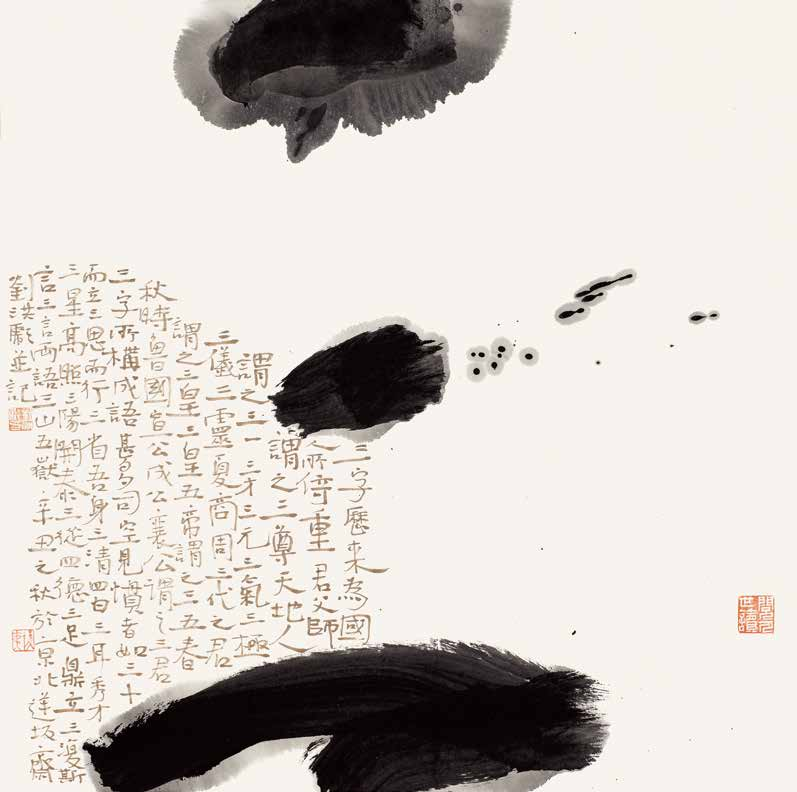 三字歷來為國
人所倚重君父師
謂之三尊天地人
謂之三一三才三元三氣三極
三儀三靈夏商周三代之君
謂之三皇三皇五帝謂之三五春
秋時魯國宣公成公襄公謂之三君
三字所構成語甚多司空見慣者如三十
而立三思而行三省吾身三清四白三耳秀才
三星高照三陽開泰三從四德三足鼎立三復斯
言三言兩語三山五嶽辛丑之秋於京北蓮坂齋
劉洪彪並記